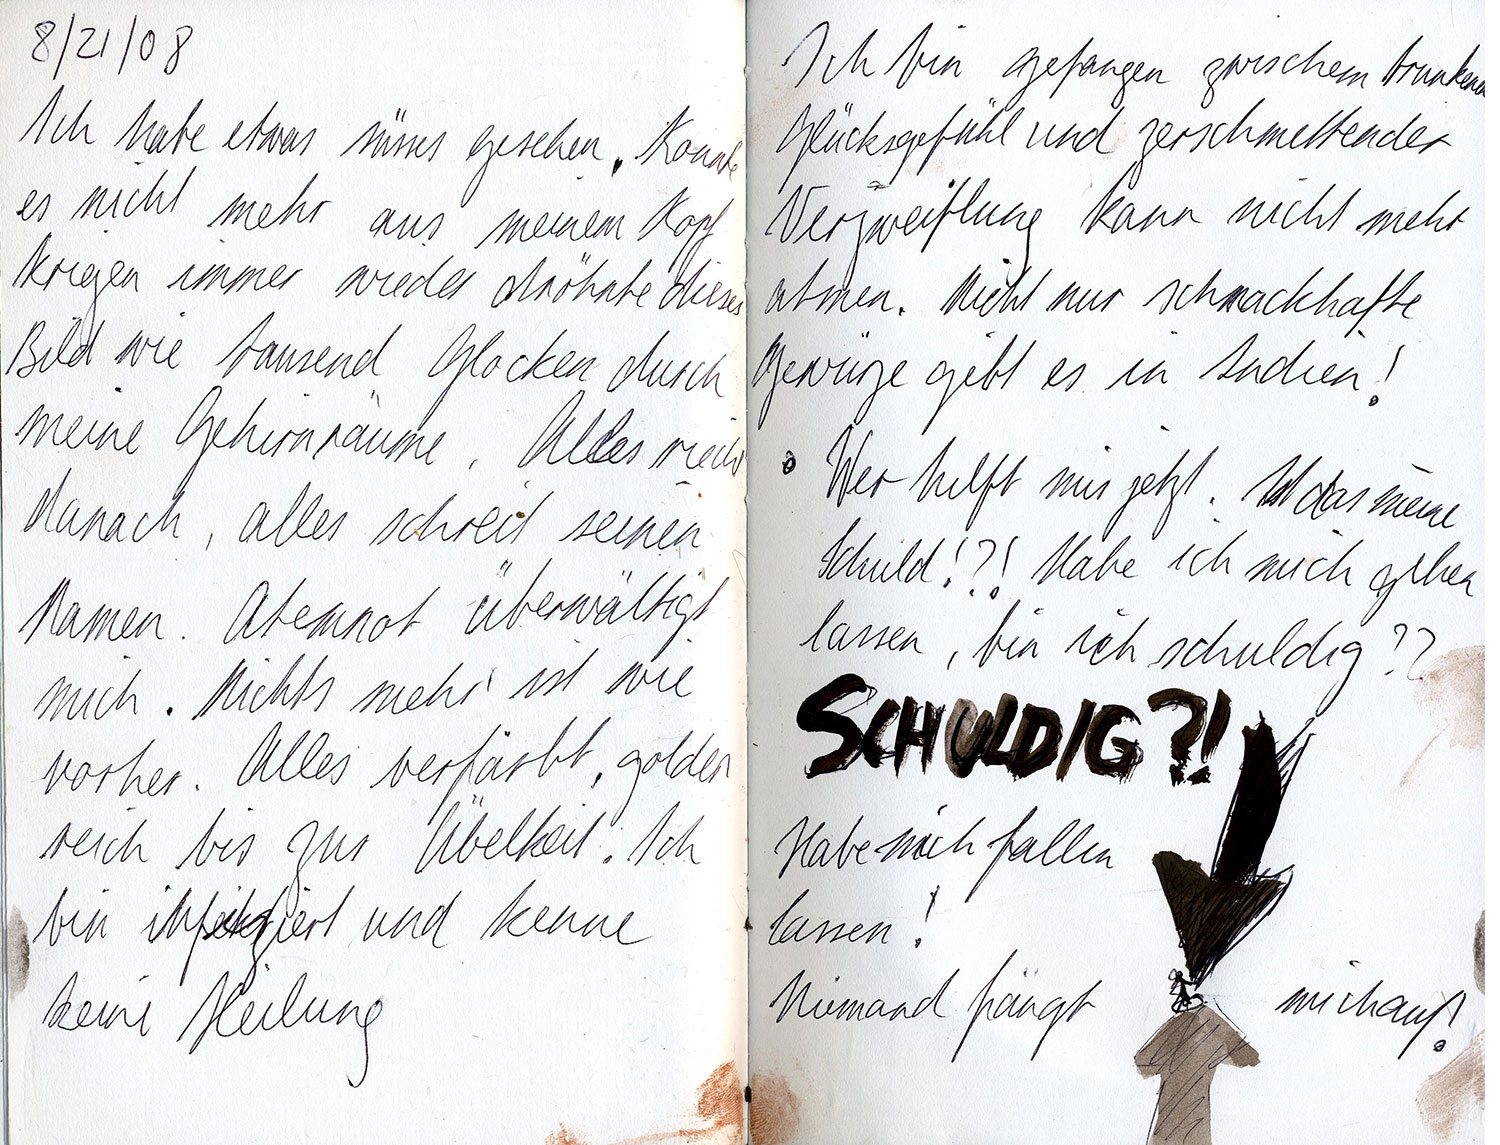 8/21/08
Ich habe etwas süsses gesehen. Konnte
es nicht mehr aus meinem Kopf
krigen immer wieder dröhnte dieses
Bild wie tausend Glocken durch
meine Gehirnräume. Alles riecht
danach, alles schreit seinen
Namen. Atemnot überwältigt
mich. Nichts mehr ist wie
vorher. Alles verfärbt, golden
reich bis zur Übelkeit. Ich
bin infiziert und kenne
keine Heilung
Ich bin gefangen zwischem trunkenem
Glücksgefühl und zerschmettender
Verzweiflung kann nicht mehr
atmen. Nicht nur schmackhafte
Gewürze gibt es in Indien!
Wer hilft mir jetzt. Ist das meine
Schuld!?! Habe ich mich gehen
lassen, bin ich schuldig??
SCHULDIG?!
Habe mich fallen
lassen!
Niemand fängt mich auf!